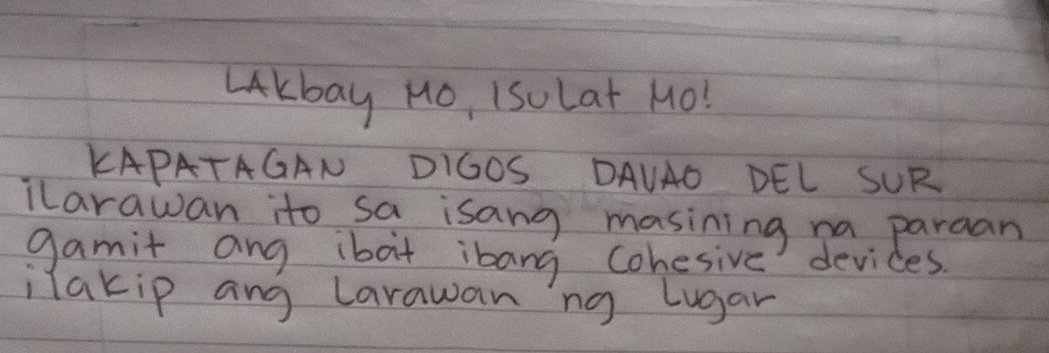 LAKbay MO, ISULat MO!
KAPATAGAN DIGOS DAVAO DEL SUR
iLarawan ito sa isang masining na paraan
gamit ang ibat ibang Cohesive devices.
ilakip ang Larawan ng Lugar